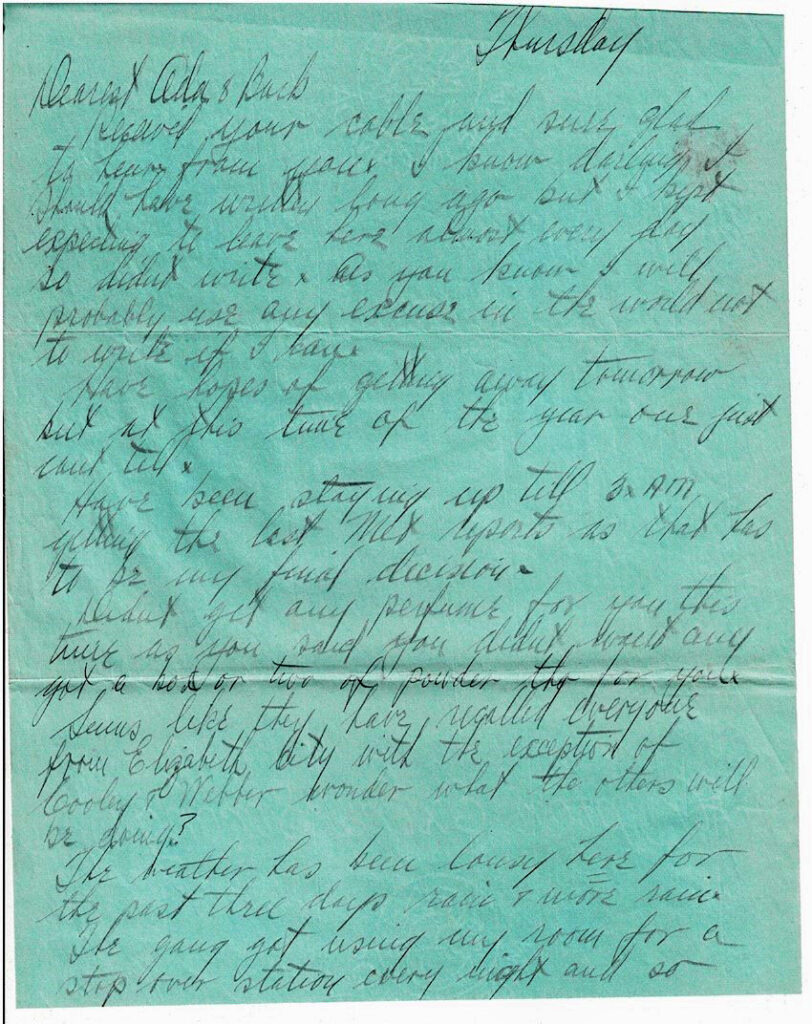 Thursday
Dearest Ada & Buck
Receivd your cable and sure glad
to hear from you. I know darling I
should have written long ago but I kept
expecting to leave here almost every day
so didnt write. As you know I will
probably use any excuse in the world not
to write if I can.
Have hopes of getting away tomorrow
but at this time of the year one just
cant tell.
Have been staying up till 3 AM
getting the last Met reports as that has
to be my final decision.
Didnt get any perfume for you this
time as you said you didnt want any
got a box or two of powder tho for you.
Seems like they have recalled everyone
from Elizabeth City with the exception of
Cooley & Webber wonder what the others will
be doing?
The weather has been lousy here for
the past three days rain & more rain.
The gang got using my room for a
stop over station every night and so